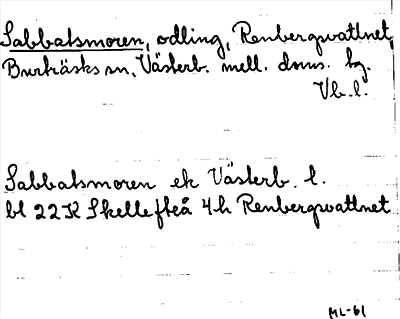 Sabbatsmoren, odling, Renbergsvattnet,
Burträsks sn, Västerb. mell. doms. tg.
Vb. l.
Sabbatsmoren ek Västerb. l.
bl 22K Skellefteå 4h Renbergsvattnet
ML-61